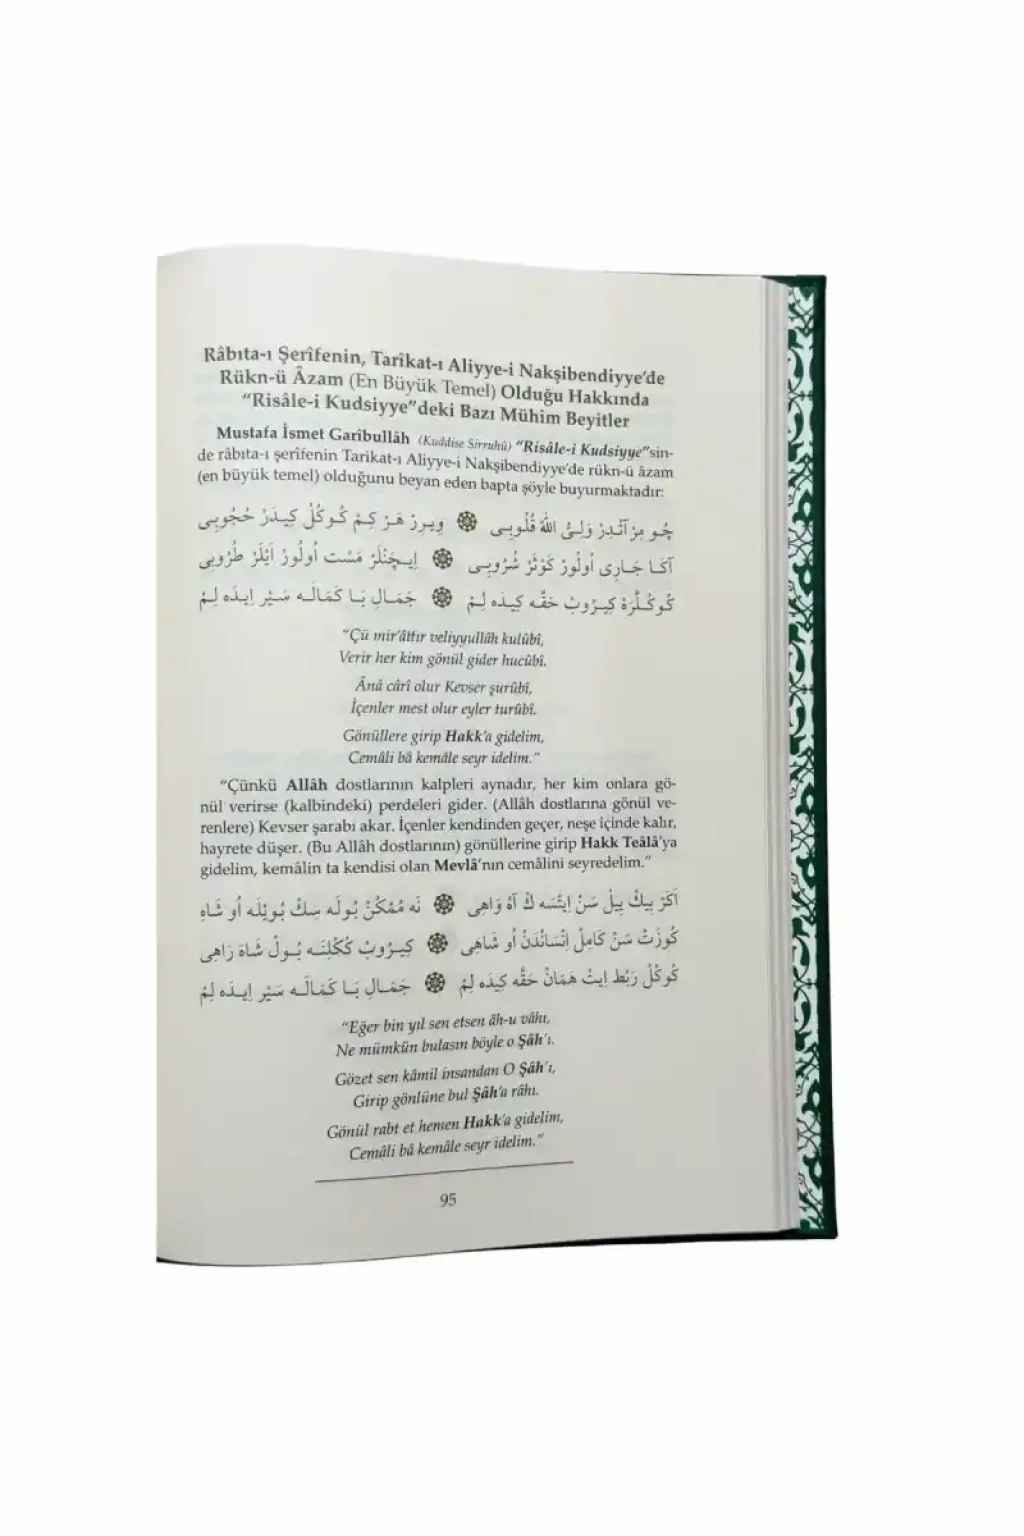 Râbıta-ı Şerîfenin, Tarîkat-ı Aliyye-i Nakşibendiyye'de
Rükn-ü Âzam (En Büyük Temel) Olduğu Hakkında
"Risâle-i Kudsiyye"deki Bazı Mühim Beyitler
Mustafa İsmet Garîbullâh (Kuddise Sirruhû) "Risâle-i Kudsiyye"sin-
de râbıta-ı şerîfenin Tarikat-ı Aliyye-i Nakşibendiyye'de rükn-ü âzam
(en büyük temel) olduğunu beyan eden bapta şöyle buyurmaktadır:
چُو مِرْآتْدِرْ وَلِىُّ اللهْ قُلُوبِى ۞ وِيرِرْ هَرْ كِمْ كُوكُلْ كِيدَرْ حُجُوبِى
آكَا جَارِى اُولُورْ كَوْثَرْ شُرُوبِى ۞ اِيچَنْلَرْ مَسْت اُولُورْ اَيْلَرْ طُرُوبِى
كُوكُلْلَرَهْ كِيرُوبْ حَقَّه كِيدَه لِمْ ۞ جَمَالِ بَا كَمَالَه سَيْر اِيدَه لِمْ
"Çü mir'âttır veliyyullâh kulûbî,
Verir her kim gönül gider hucûbî.
Ânâ cârî olur Kevser şurûbî,
İçenler mest olur eyler turûbî.
Gönüllere girip Hakk'a gidelim,
Cemâli bâ kemâle seyr idelim."
"Çünkü Allâh dostlarının kalpleri aynadır, her kim onlara gö-
nül verirse (kalbindeki) perdeleri gider. (Allâh dostlarına gönül ve-
renlere) Kevser şarabı akar. İçenler kendinden geçer, neşe içinde kalır,
hayrete düşer. (Bu Allâh dostlarının) gönüllerine girip Hakk Teâlâ'ya
gidelim, kemâlin ta kendisi olan Mevlâ'nın cemâlini seyredelim."
اَكَرْ بِيكْ يِيلْ سَنْ اِيتْسَه كْ آهُ وَاهِى ۞ نَه مُمْكُنْ بُولَه سِكْ بُويْلَه اُو شَاهِ
كُوزَتْ سَنْ كَامِلْ اِنْسَانْدَنْ اُو شَاهِى ۞ كِيرُوبْ كُكْلِنَه بُولْ شَاهَ رَاهِى
كُوكُلْ رَبْط اِيتْ هَمَانْ حَقَّه كِيدَه لِمْ ۞ جَمَالِ بَا كَمَالَه سَيْر اِيدَه لِمْ
"Eğer bin yıl sen etsen âh-u vâhı,
Ne mümkün bulasın böyle o Şâh'ı.
Gözet sen kâmil insandan O Şâh'ı,
Girip gönlüne bul Şâh'a râhı.
Gönül rabt et hemen Hakk'a gidelim,
Cemâli bâ kemâle seyr idelim."
95